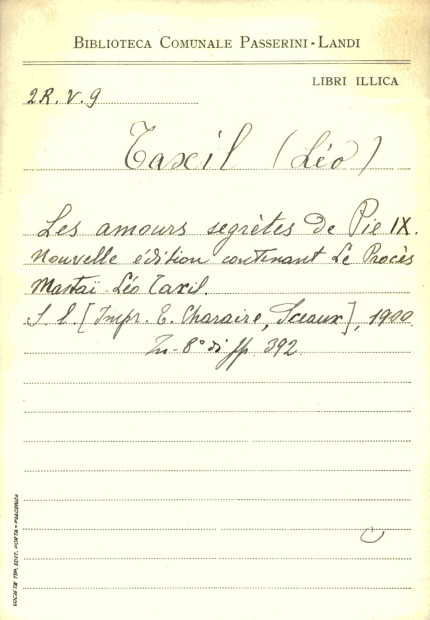 BIBLIOTECA COMUNALE PASSERINI-LANDI
LIBRI ILLICA
2R. V. 9
Taxil (Léo)
Les amours segrètes de Pie IX.
Nouvelle édition contenant Le Procès
Mastaï-Léo Taxil.
S. l. [Impr. E. Charaire, Sceaux], 1900
In-8° di pp. 392
SOCIETÀ TIP. EDIT. PORTA - PIACENZA